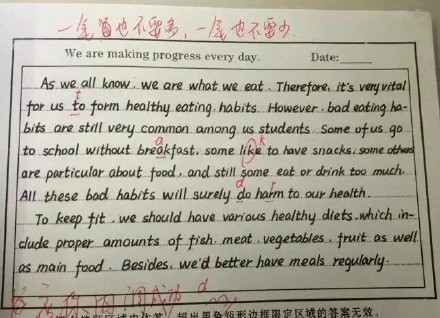 一笔也不要多，一笔也不要少.
We are making progress every day. Date:
As we all know, we are what we eat. Therefore, it's very vital
for us to form healthy eating habits. However, bad eating ha-
bits are still very common among us students. Some of us go
to school without breakfast, some like to have snacks, some others
are particular about food, and still some eat or drink too much.
All these bad habits will surely do harm to our health.
To keep fit, we should have various healthy diets, which in-
clude proper amounts of fish, meat, vegetables, fruit as well
as main food. Besides, we'd better have meals regularly.
超出黑色矩形边框限定区域的答案无效。